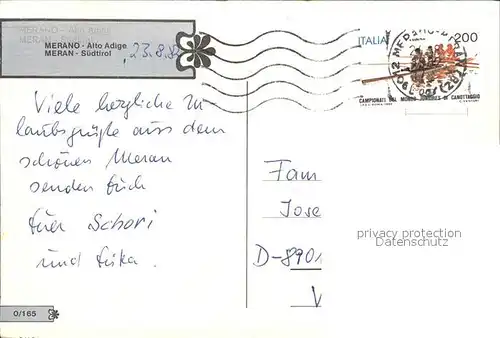 MERANO - Alto Adige
MERAN - Südtirol
23.8.82
ITALIA 200
CAMPIONATI DEL MONDO JUNIORES DI CANOTTAGGIO
Viele herzliche Ur-
laubsgrüße aus dem
schönen Meran
senden Euch
Euer Schori
und Erika.
Fam
Jose
D-8901
V
privacy protection
Datenschutz
0/165